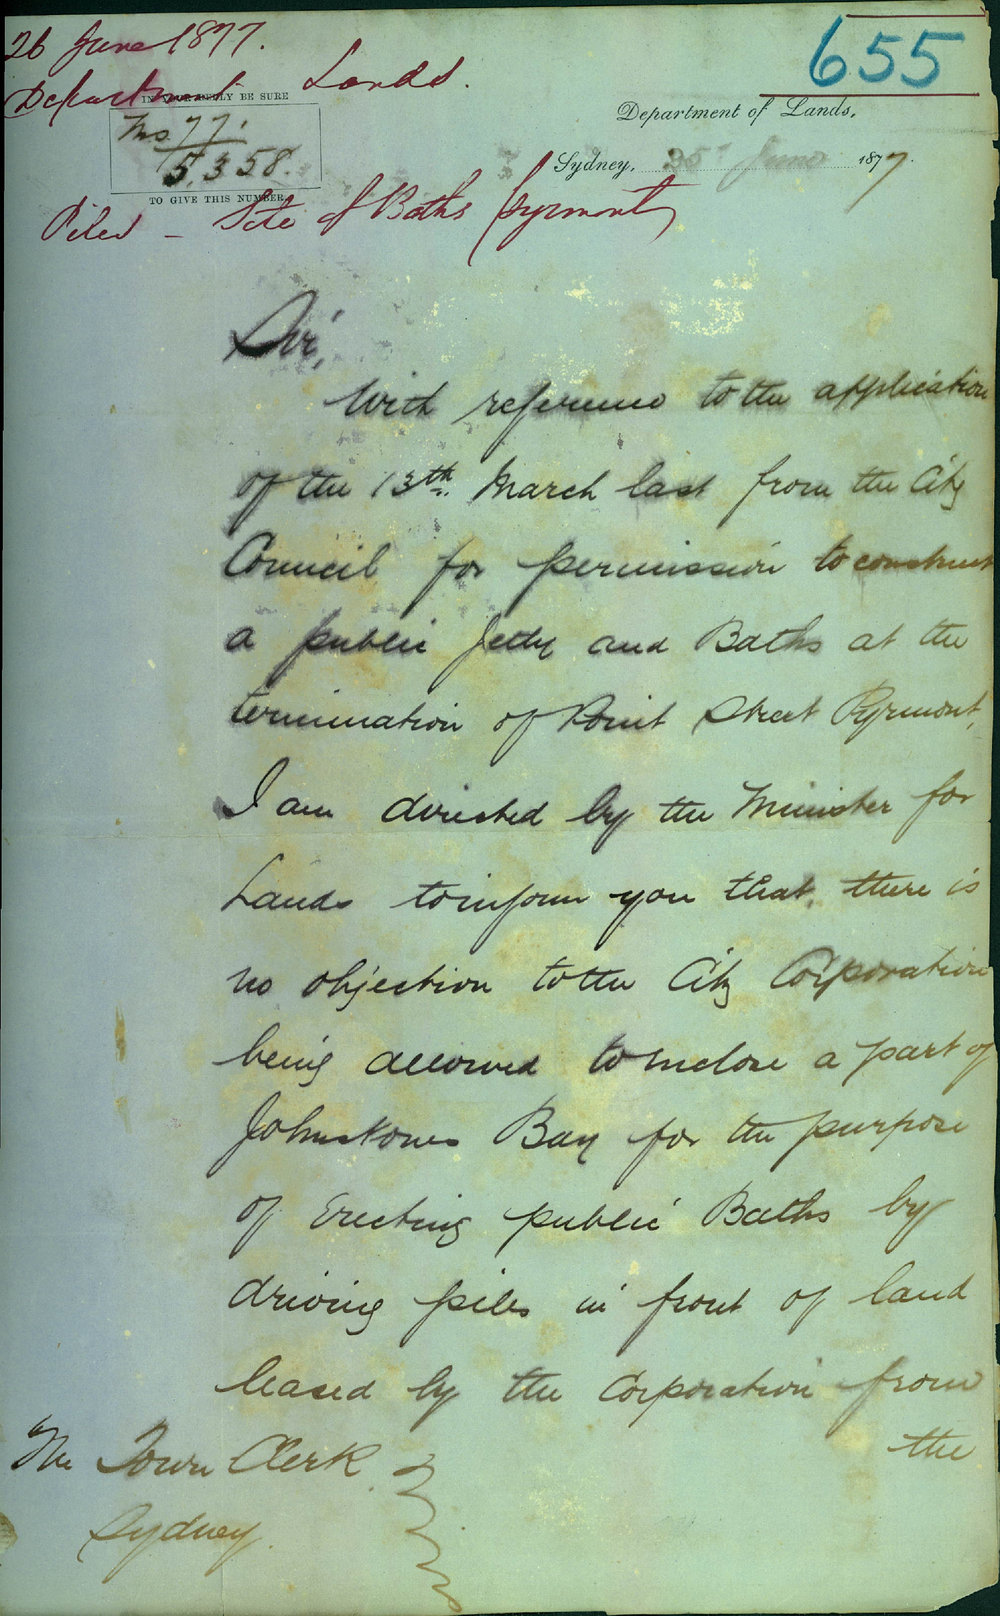 26 June 1877.
655
Department Lands.
IN YOUR REPLY BE SURE
Ms. 77.
5,358.
TO GIVE THIS NUMBER.
Department of Lands,
Sydney, 25 June 1877.
Piles - Site of Baths Pyrmont
Sir,
With reference to the application
of the 13th. March last from the City
Council for permission to construct
a public Jetty and Baths at the
termination of Point Street Pyrmont,
I am directed by the Minister for
Lands to inform you that, there is
no objection to the City Corporation
being allowed to inclose a part of
Johnstones Bay for the purpose
of Erecting public Baths by
driving piles in front of land
leased by the Corporation from
the
The Town Clerk
Sydney.